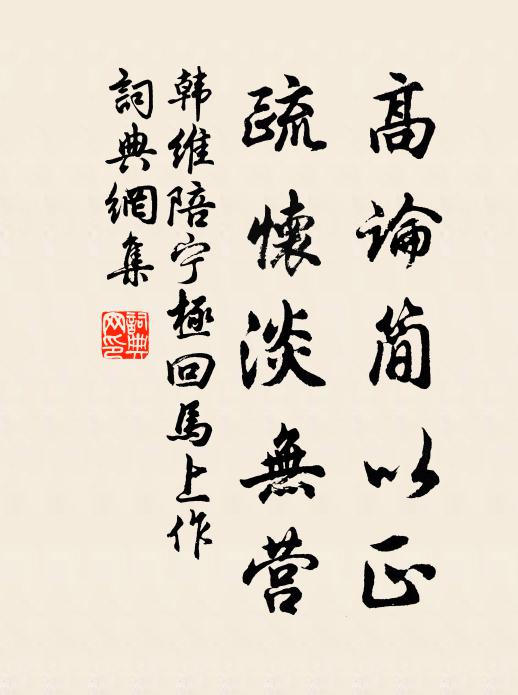 高論简以正
疏懷淡無营
韩維陪宁極回馬上作
詞典網集
詞典
网印